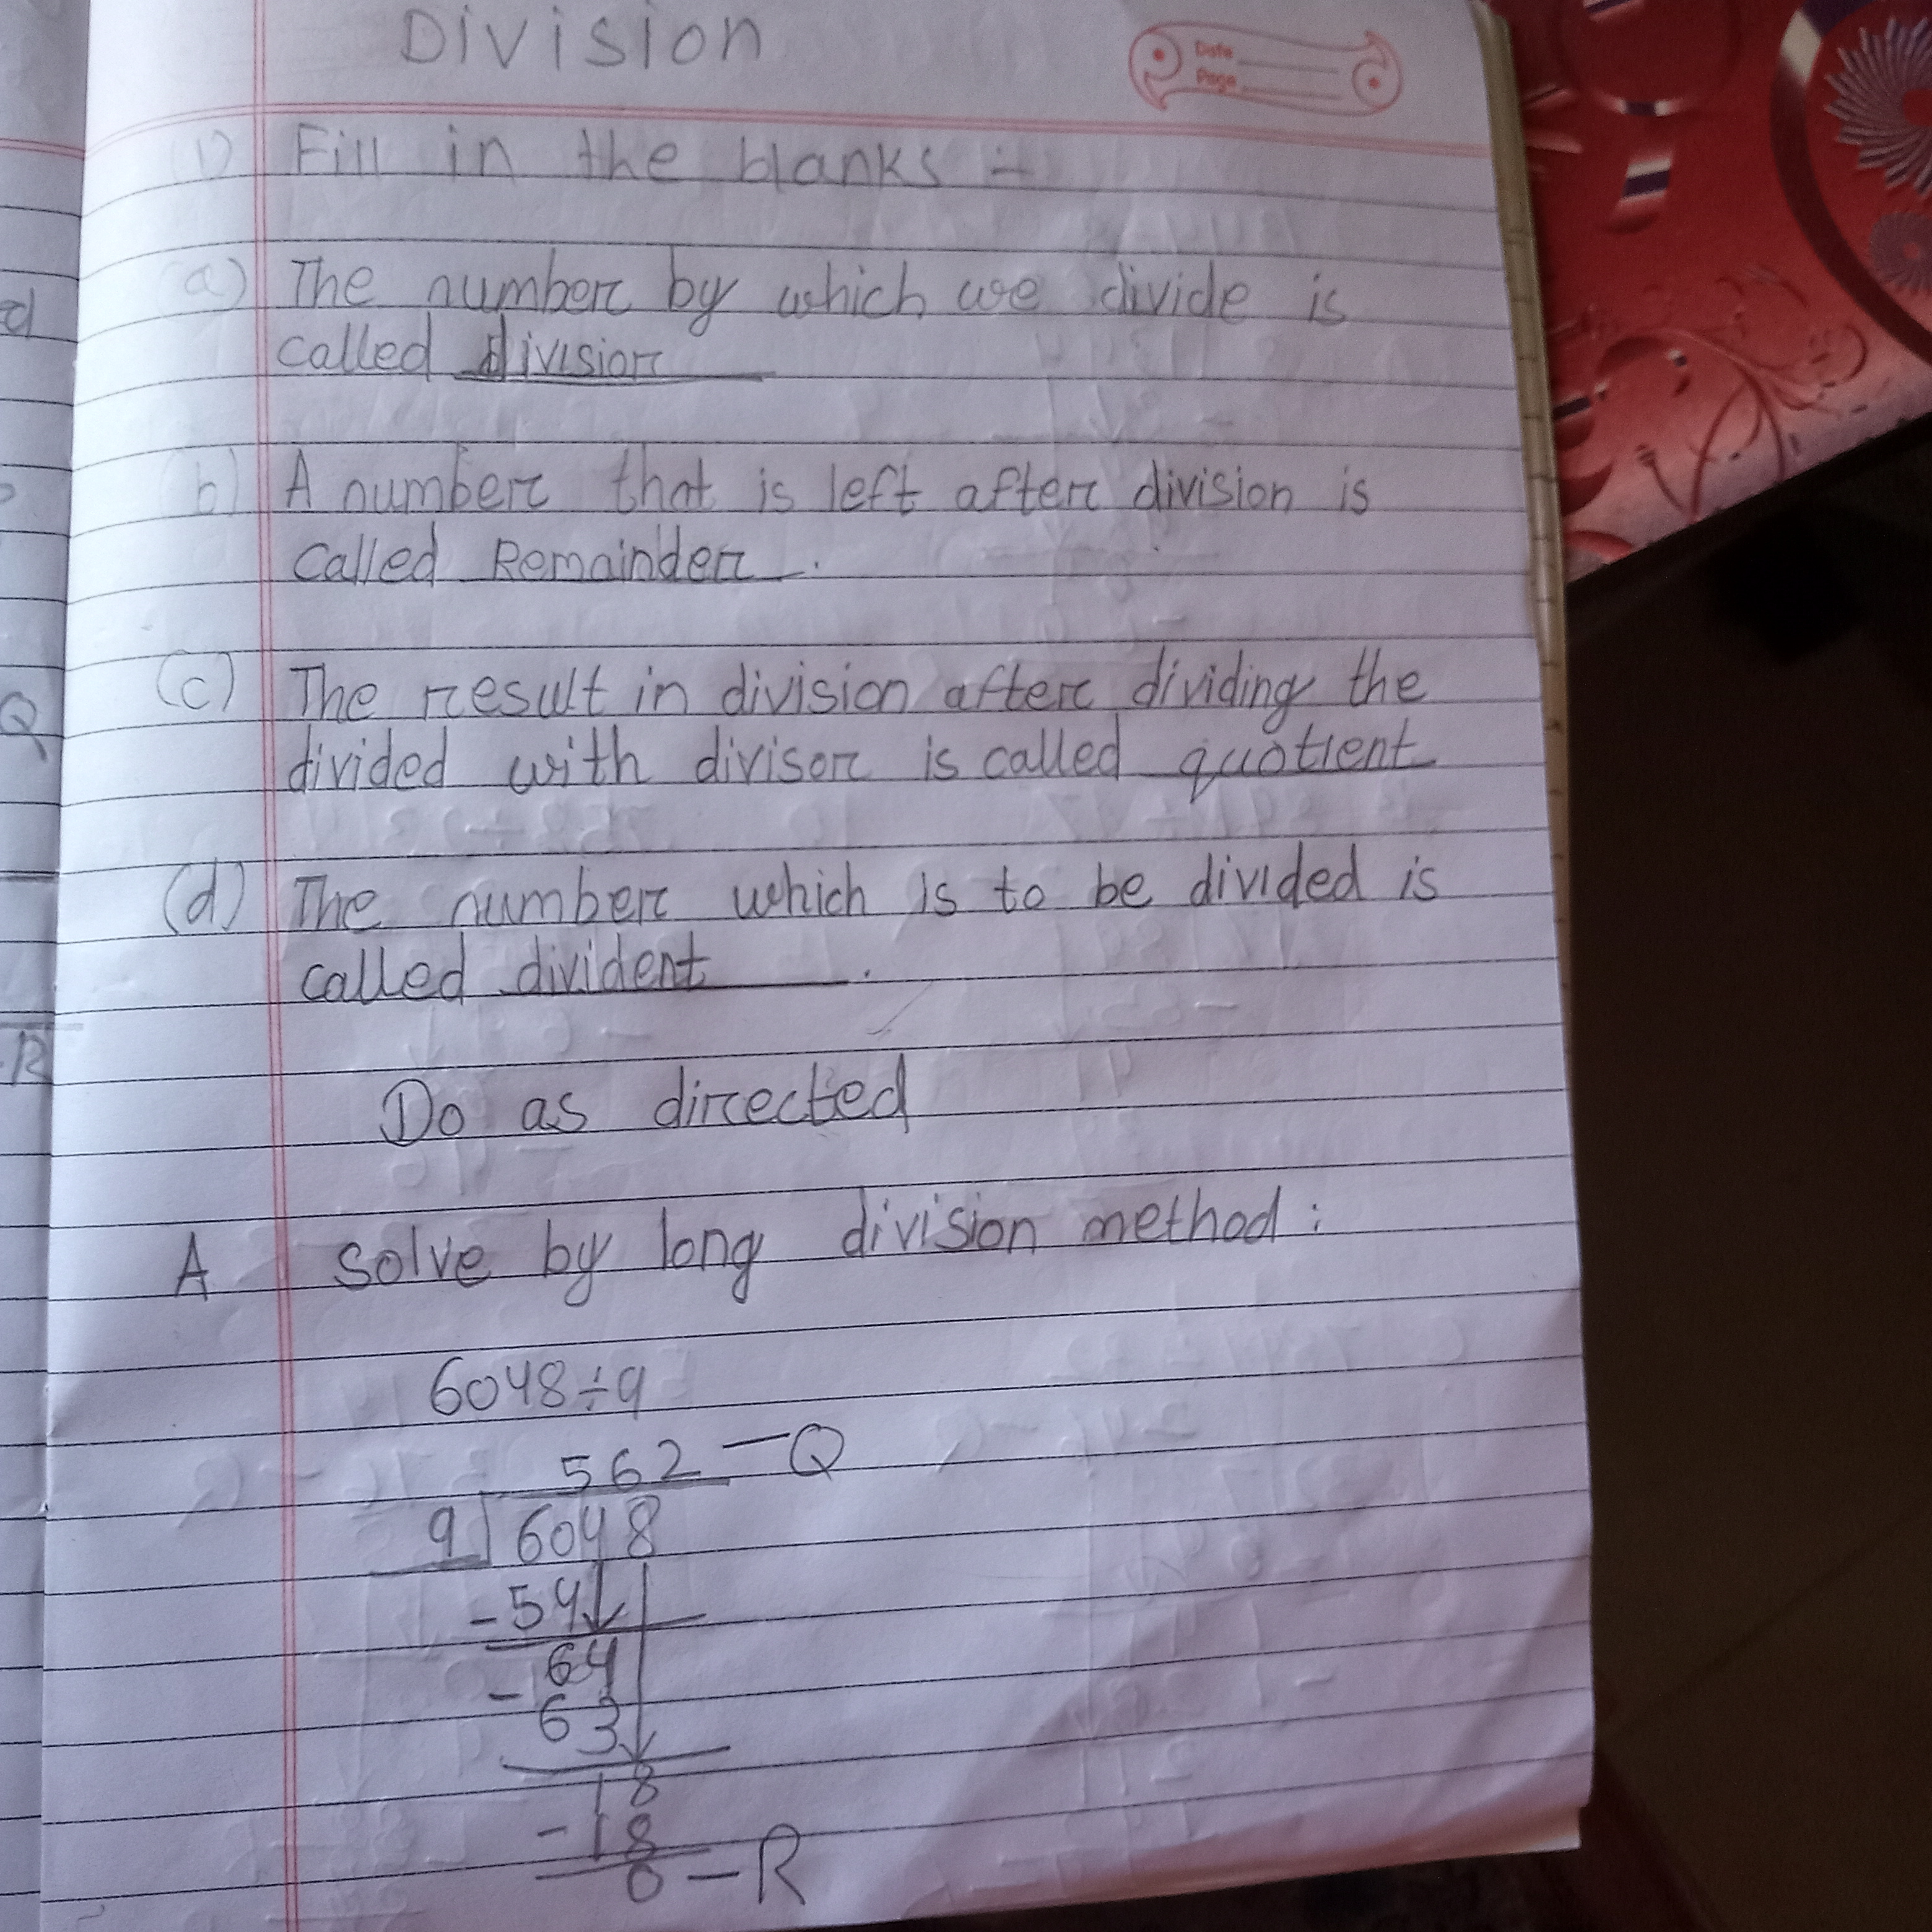 Division
Date
Page
1) Fill in the blanks :-
(a) The number by which we divide is
called division
(b) A number that is left after division is
called Remainder.
(c) The result in division after dividing the
divided with divisor is called quotient
(d) The number which is to be divided is
called divident.
Do as directed
A solve by long division method:
6048÷9
562 — Q
9 6048
-54
64
- 63
18
-18
0 — R
d
Q
R